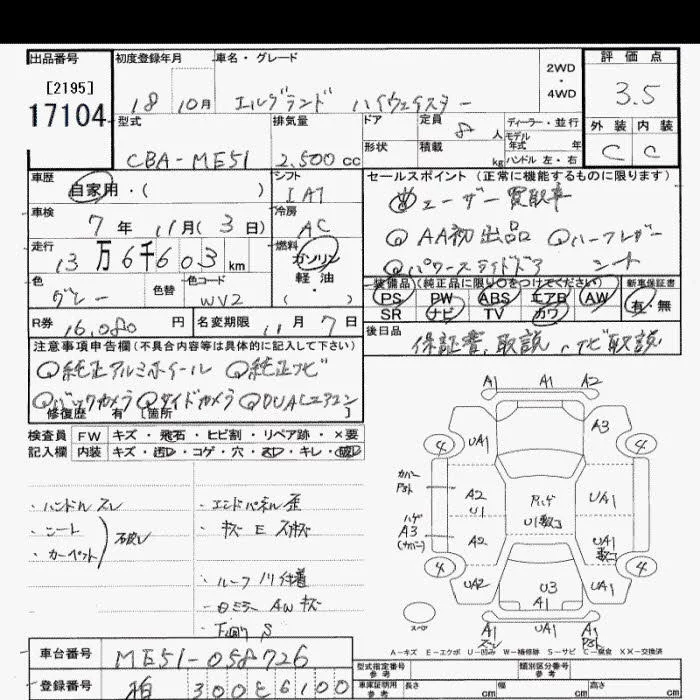 出品番号 初度登録年月 車名・グレード 2WD・4WD 評価点
[2195]
17104 18 10月 エルグランド ハイウェイスター 3.5
型式 排気量 ドア 定員 8 人 ディーラー・並行 外装 内装
モデル年式 年
CBA-ME51 2.500 cc 形状 積載 kg ハンドル 左・右 C C
車歴 シフト セールスポイント (正常に機能するものに限ります)
自家用・( ) IAT ユーザー買取車
車検 冷房
7年 11月(3日) AC AA初出品 ハーフレザーシート
走行 燃料
13万6千603km ガソリン パワースライドドア
軽油
・( )
色 色替 色コード 装備品 (純正品に限り○をつけてください) 新車保証書
グレー WV2 PS PW ABS エアB AW 有・無
SR ナビ TV カワ
R券 16,080 円 名変期限 11月7日 後日品
保証書、取説、ナビ取説
注意事項申告欄 (不具合内容等は具体的に記入して下さい)
純正アルミホイール 純正ナビ
バックカメラ サイドカメラ DUALエアコン
修復歴 有 [箇所 ]
検査員 FW キズ・飛石・ヒビ割・リペア跡・×要
記入欄 内装 キズ・汚レ・コゲ・穴・キレ・破レ
・ハンドルスレ ・エンドパネル歪
・シート
・カーペット
ルーフ
ミラー AWキズ
下廻りS
A1 A1 A2
4 UA1 A3 4
カバー
A2 U1 UA1
U1
ハゲ A3 (カバー) A2 UA1
4 UA2 U3 UA1 4
A1
スペア A1 UA1 A1
A-キズ E-エクボ U-凹み W-補修跡 S-サビ C-腐食 XX-交換済
車台番号 ME51-058726
型式指定番号 参考 類別区分番号 参考
登録番号 柏 300 6100
車庫証明用 参考 長さ cm 幅 cm 高さ cm